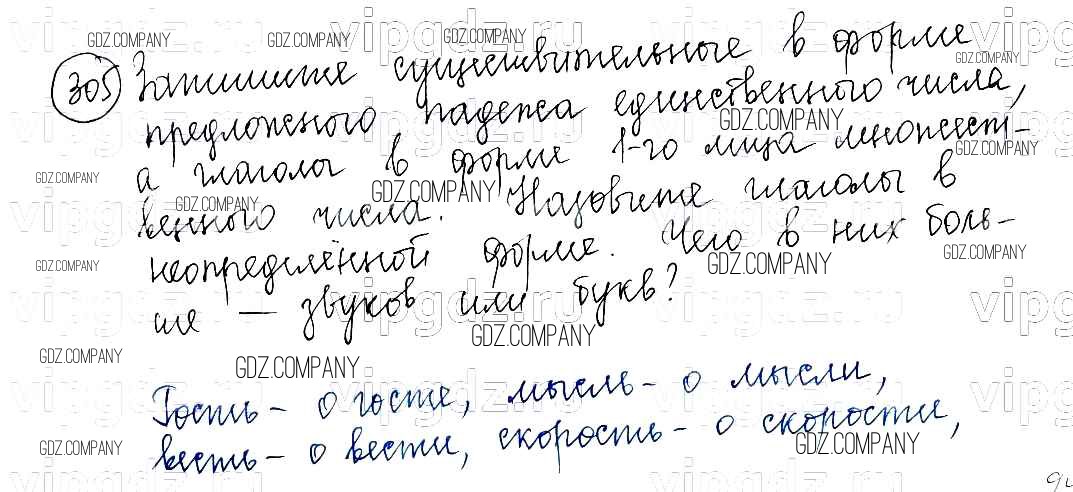 305 Запишите существительные в форме
предложного падежа единственного числа,
а глаголы в форме 1-го лица множест-
венного числа. Назовите глаголы в
неопределённой форме. Чего в них боль-
ше — звуков или букв?
Гость - о госте, мысль - о мысли,
весть - о вести, скорость - о скорости,
GDZ.COMPANY
vipgdz.ru